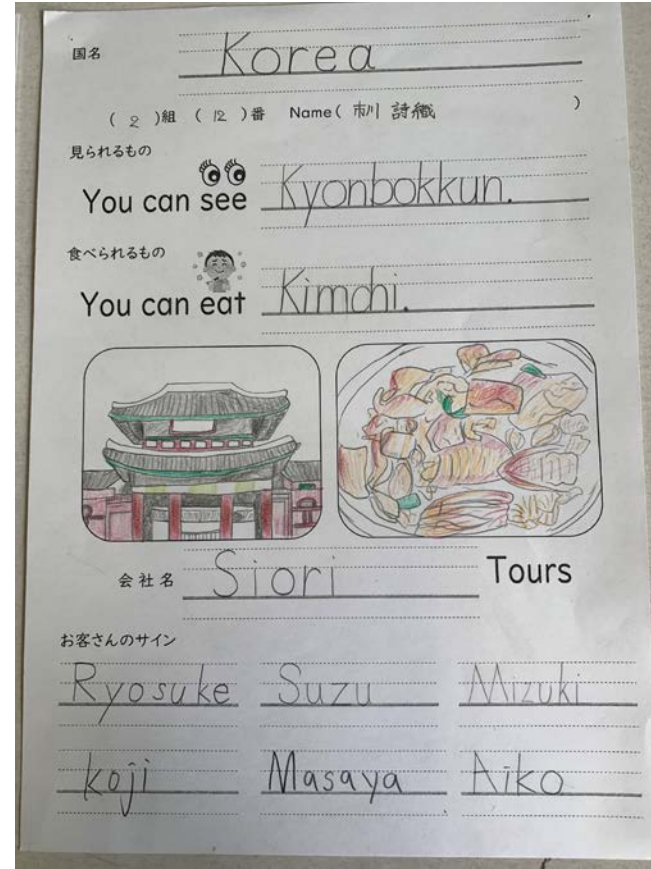 国名 Korea
( 2 )組 ( 12 )番 Name( 市川 詩織 )
見られるもの
You can see Kyonbokkun.
食べられるもの
You can eat Kimchi.
会社名 Siori Tours
お客さんのサイン
Ryosuke Suzu Mizuki
koji Masaya Aiko